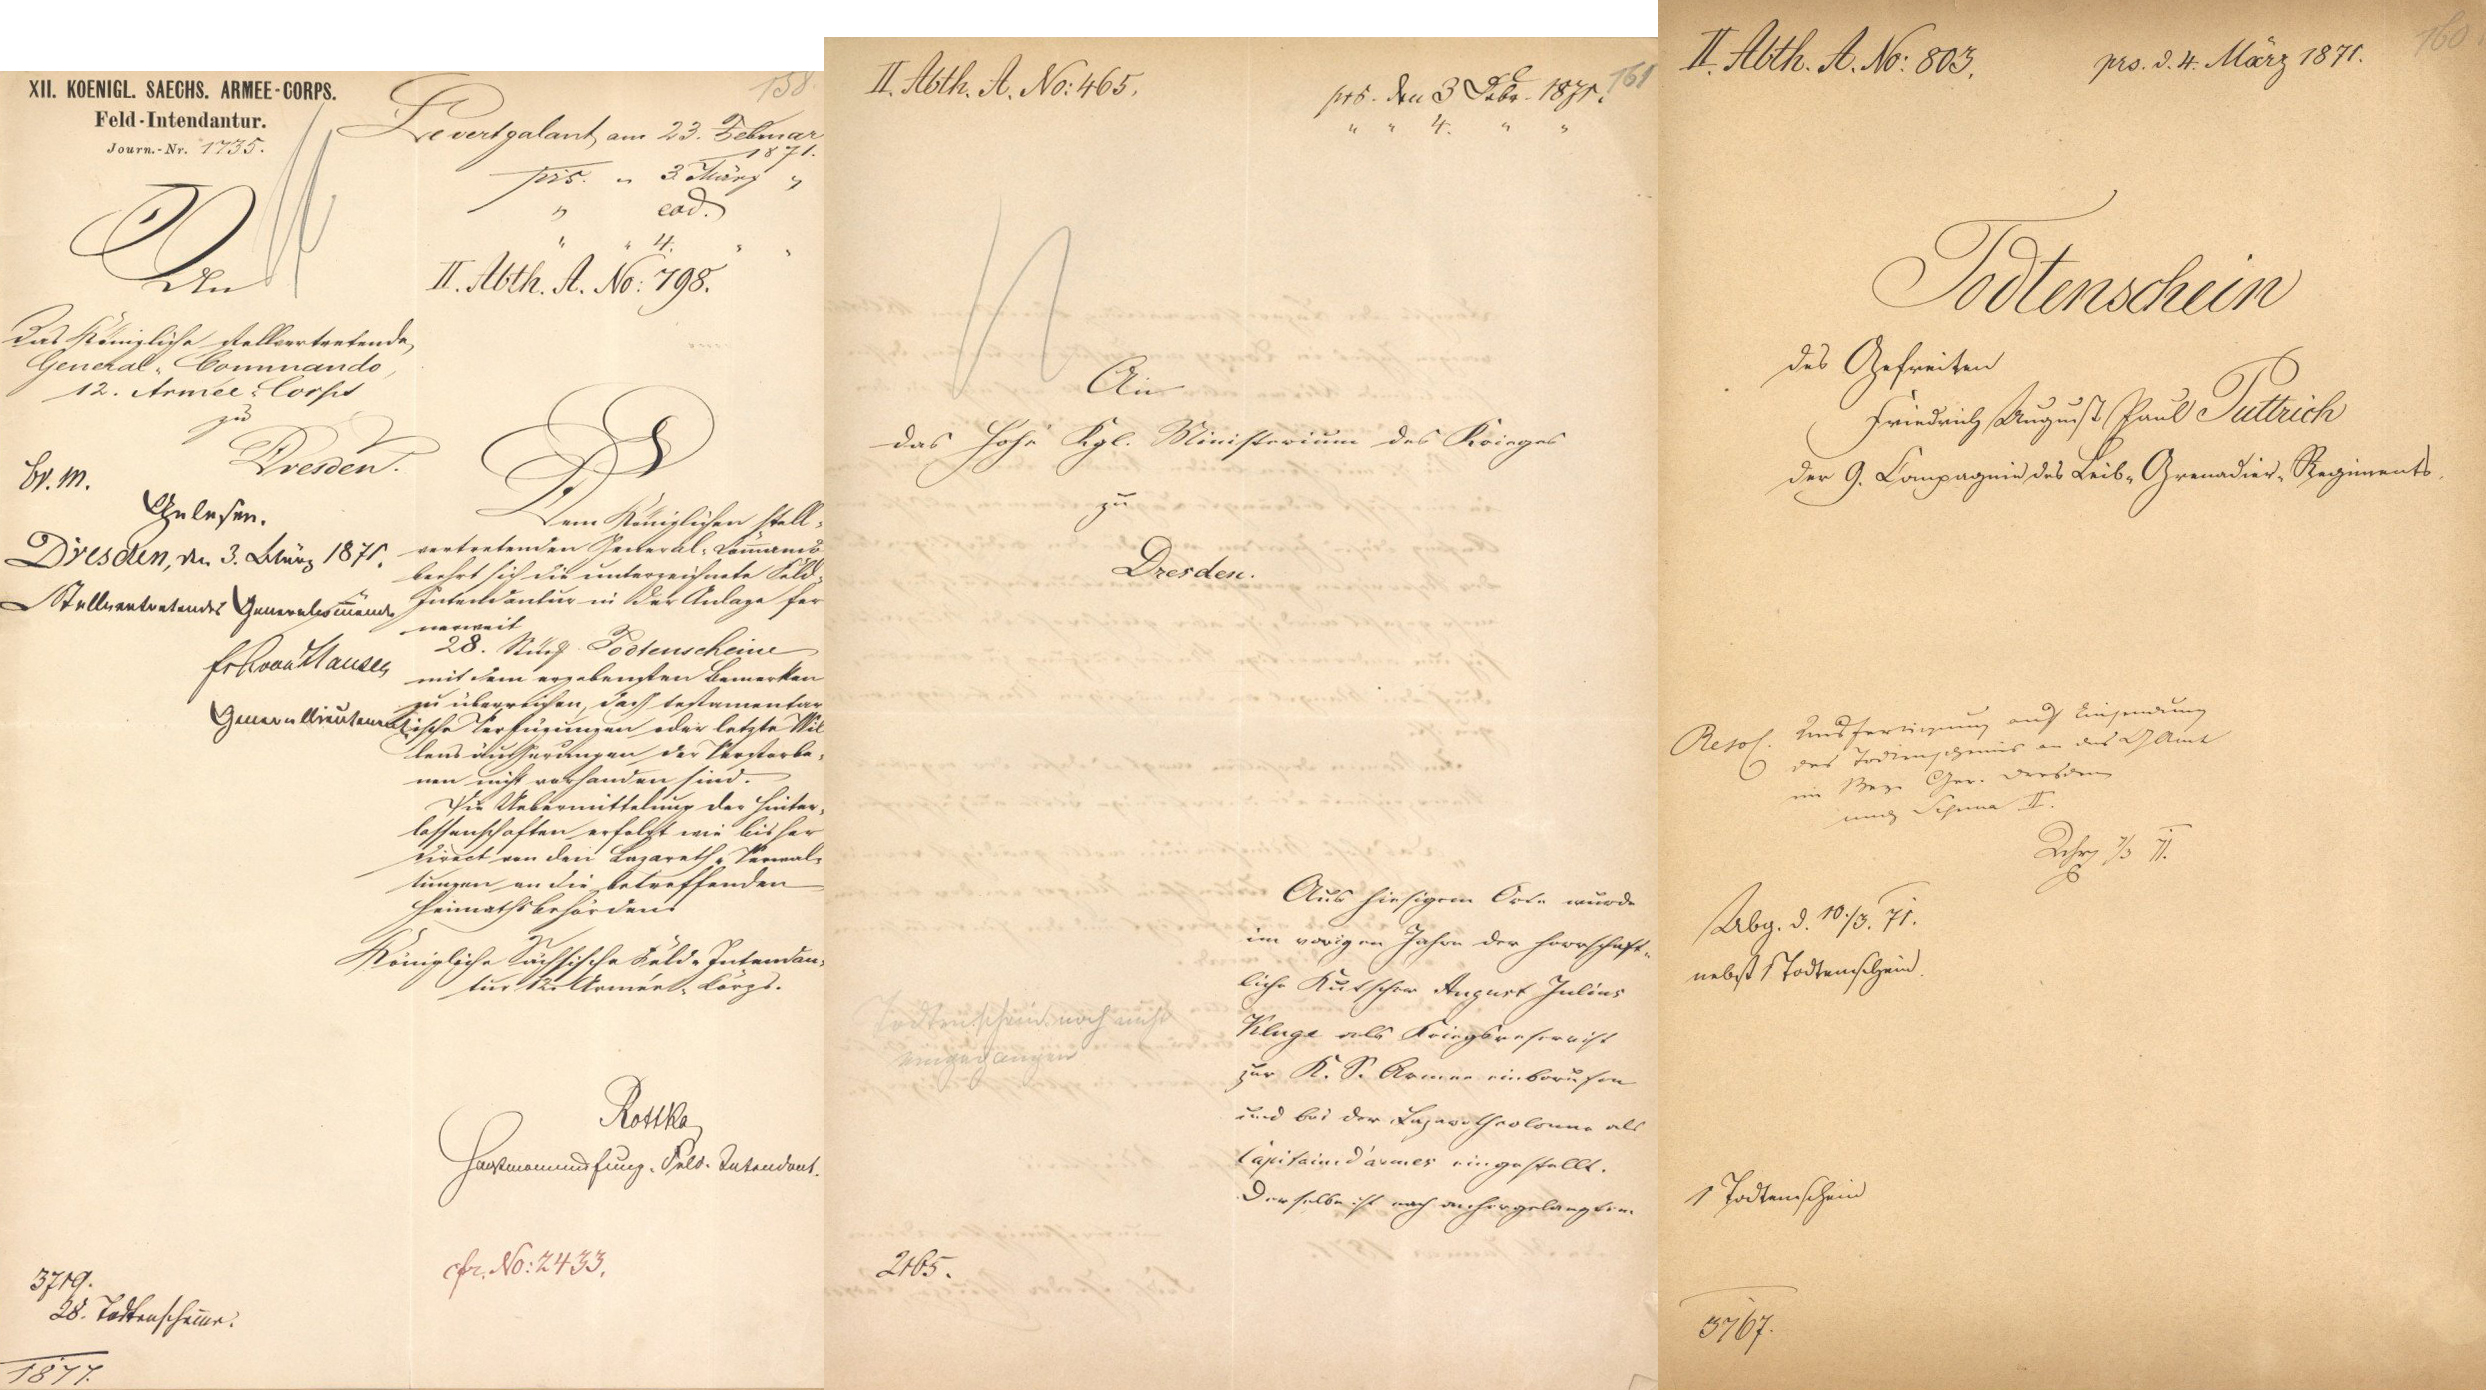 XII. KOENIGL. SAECHS. ARMEE-CORPS.
Feld-Intendantur.
Journ.-Nr. 1735.
158.
Levertgalant, am 23. Februar
1871.
prs. " 3 März "
" eod.
" " 4. " "
II. Abth. A. No: 798.
An
das Königliche stellvertretende
General-Commando,
12. Armee-Corps
zu
Dresden.
br. m.
Gelesen.
Dresden, den 3. März 1871.
Stellvertretendes Generalcommando
von Hausen
Generallieutenant
Dem Königlichen stell-
vertretenden General-Commando
beehrt sich die unterzeichnete Feld-
Intendantur in der Anlage fer
nerweit
28. Stück Todtenscheine
mit dem ergebensten Bemerken
zu überreichen, daß testamentar
ische Verfügungen oder letzte Wil
lensäußerungen der Verstorbe-
nen nicht vorhanden sind.
Die Uebermittelung der Hinter-
lassenschaften erfolgt wie bisher
direct von den Lazareth-Verwal-
tungen an die betreffenden
Heimathsbehörden.
Königliche Sächsische Feld-Intendan-
tur 12. Armee-Corps.
Rottka
Feld-Intendant.
cfr. No: 2433.
3719.
28. Todtenscheine.
1877.
II. Abth. A. No: 465.
161
prs. den 3 Febr. 1871.
" " 4. " "
An
das hohe Kgl. Ministerium des Krieges
zu
Dresden.
Aus hiesigem Orte wurde
im vorigen Jahre der herrschaft-
liche Kutscher August Julius
Kluge als Kriegsreservist
zur K. S. Armee einberufen
und bei der Lazarethcolonne als
Capitaind'armes eingestellt.
Derselbe ist nach anhergelangten
Todtenschein noch nicht
eingegangen
2165.
II. Abth. A. No: 803.
prs. d. 4. März 1871.
160
Todtenschein
des Gefreiten
Friedrich August Paul Puttrich
der 9. Compagnie des Leib-Grenadier-Regiments.
Resol. Ausfertigung auf Einsendung
des Todtenscheins an das GAmt
im Bez. Ger. Dresden
nach Schema II.
7/3 71.
Abg. d. 10./3. 71.
nebst 1 Todtenschein.
1 Todtenschein
3767.